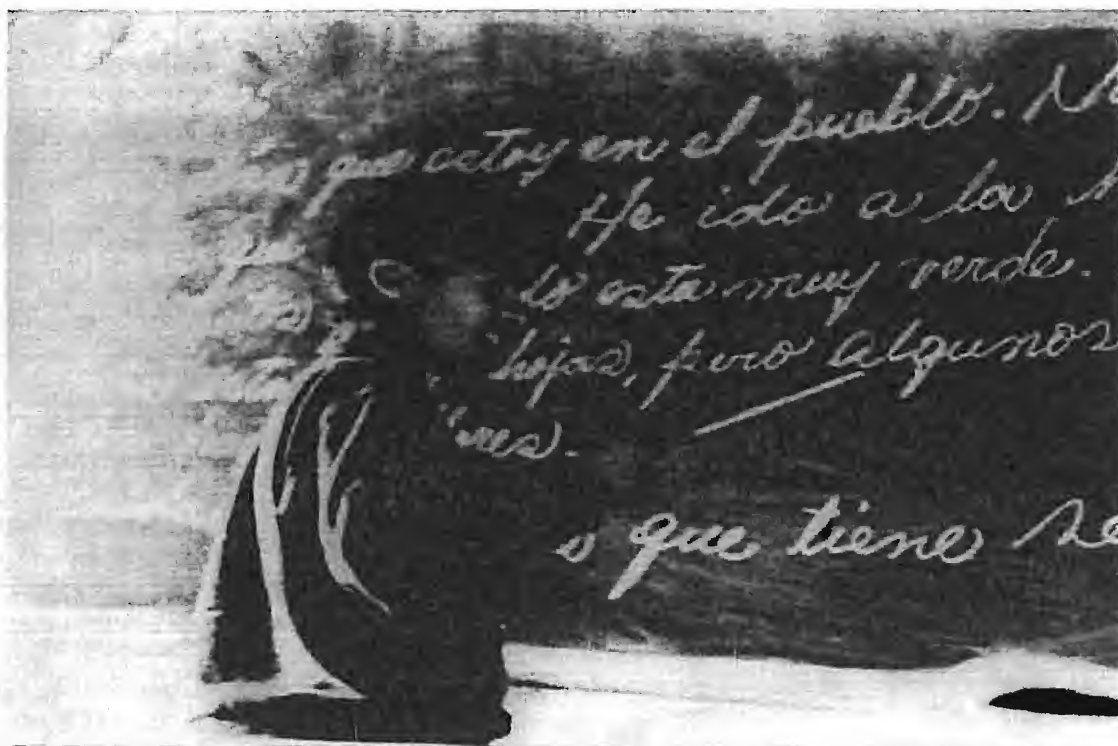 que estoy en el pueblo.
He ido a la
lo esta muy verde.
hojas, pero algunos
res.
o que tiene